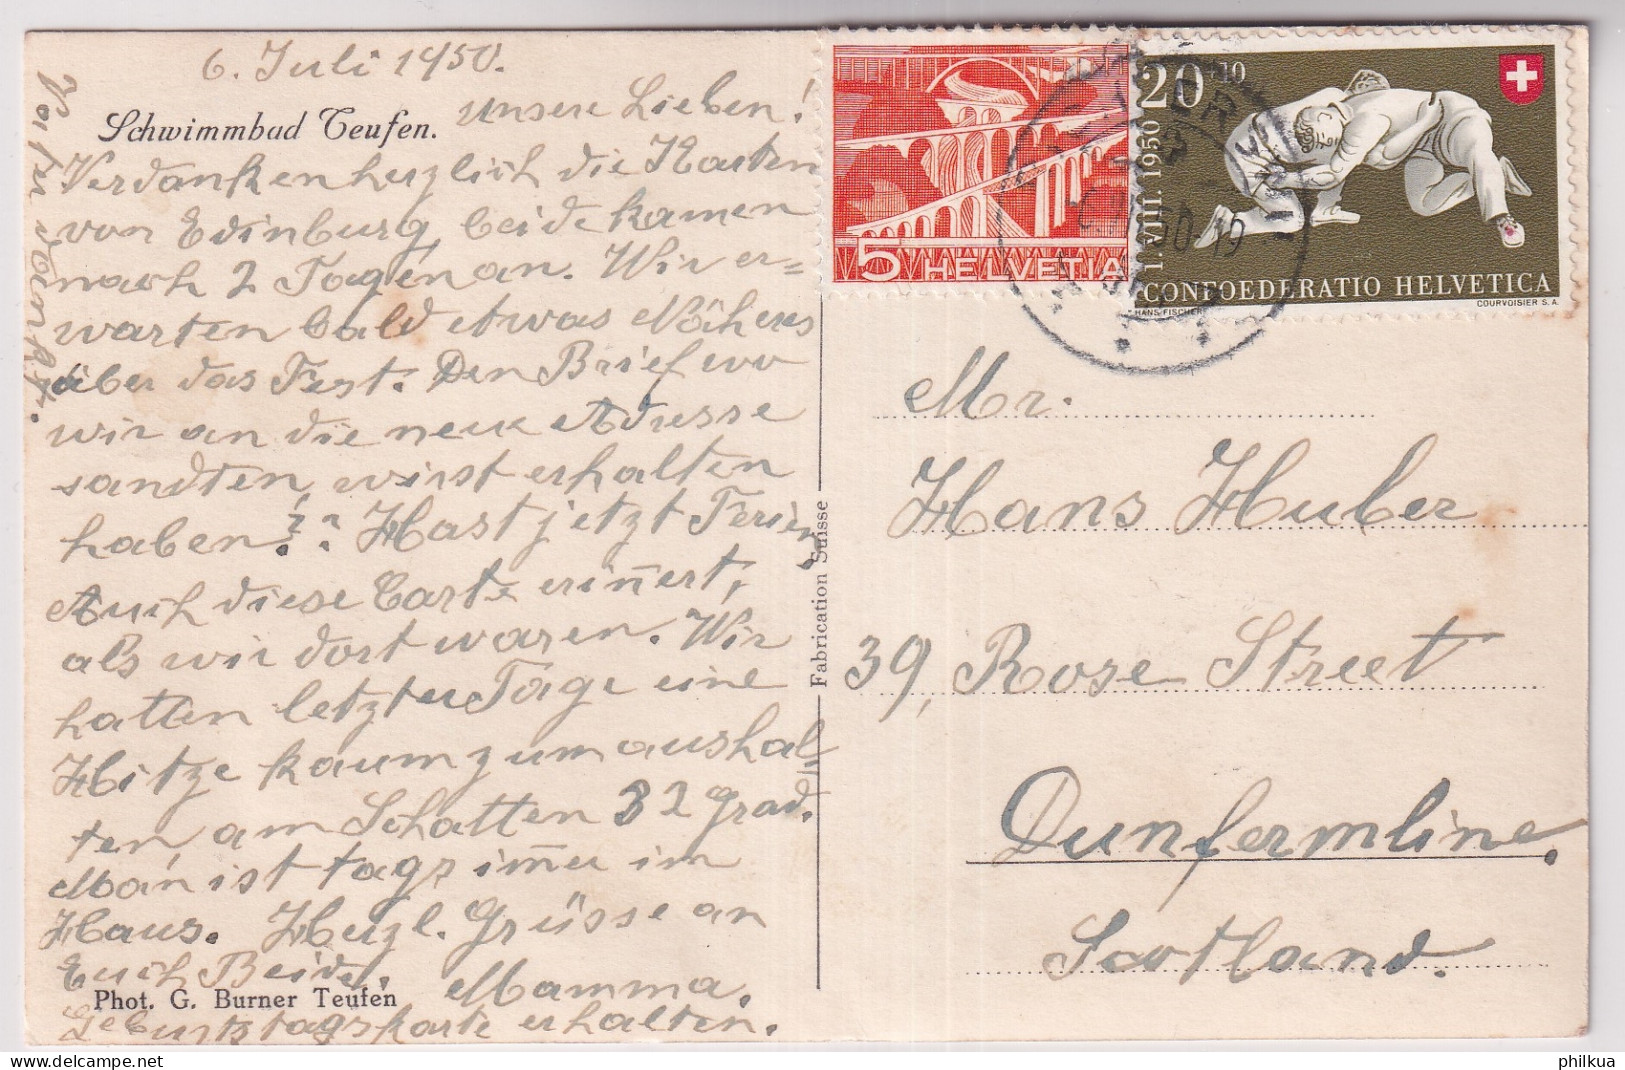 6. Juli 1950.
Schwimmbad Teufen.
unsere Lieben!
Verdanken herzlich die Karten
von Edinburg, beide kamen
nach 2 Tagen an. Wir er=
warten bald etwas Näheres
über das Fest. Den Brief wo
wir an die neue Adresse
sandten, wirst erhalten
haben?? Hast jetzt Ferien,
Auch diese Carte erin̄ert,
als wir dort waren. Wir
hatten letzter Tage eine
Hitze kaum zum aushal=
ten, am Schatten 32 Grad.
Man ist tags im̄er im
Haus. Herzl. Grüsse an
Euch Beide. Mamma.
Phot. G. Burner Teufen
Geburtstagskarte erhalten.
Vater dankt.
Fabrication Suisse
5 HELVETIA
20+10
1.VIII.1950
CONFOEDERATIO HELVETICA
HANS FISCHER
COURVOISIER S.A.
Mr.
Hans Huber
39, Rose Street
Dunfermline.
Scotland.
philkua.com
philkua